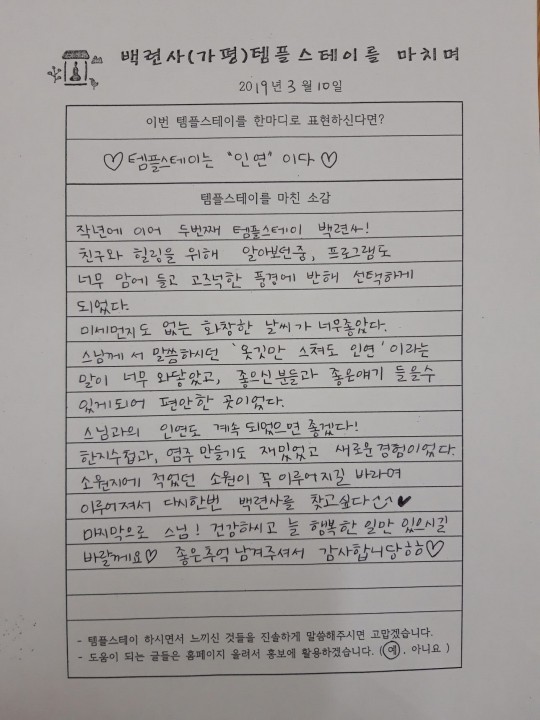 백련사(가평)템플스테이를 마치며
2019년 3월 10일
이번 템플스테이를 한마디로 표현하신다면?
♡템플스테이는 "인연"이다♡
템플스테이를 마친 소감
작년에 이어 두번째 템플스테이 백련사!
친구와 힐링을 위해 알아보던중, 프로그램도
너무 맘에 들고 고즈넉한 풍경에 반해 선택하게
되었다.
미세먼지도 없는 화창한 날씨가 너무좋았다.
스님께서 말씀하시던 '옷깃만 스쳐도 인연'이라는
말이 너무 와닿았고, 좋으신분들과 좋은얘기 들을수
있게되어 편안한 곳이었다.
스님과의 인연도 계속 되었으면 좋겠다!
한지수첩과, 염주 만들기도 재밌었고 새로운경험이었다.
소원지에 적었던 소원이 꼭 이루어지길 바라며
이루어져서 다시한번 백련사를 찾고싶다 ♥
마지막으로 스님! 건강하시고 늘 행복한 일만 있으시길
바랄께요♡ 좋은추억 남겨주셔서 감사합니당ㅎㅎ♡
- 템플스테이 하시면서 느끼신 것들을 진솔하게 말씀해주시면 고맙겠습니다.
- 도움이 되는 글들은 홈페이지 올려서 홍보에 활용하겠습니다. (예, 아니요 )